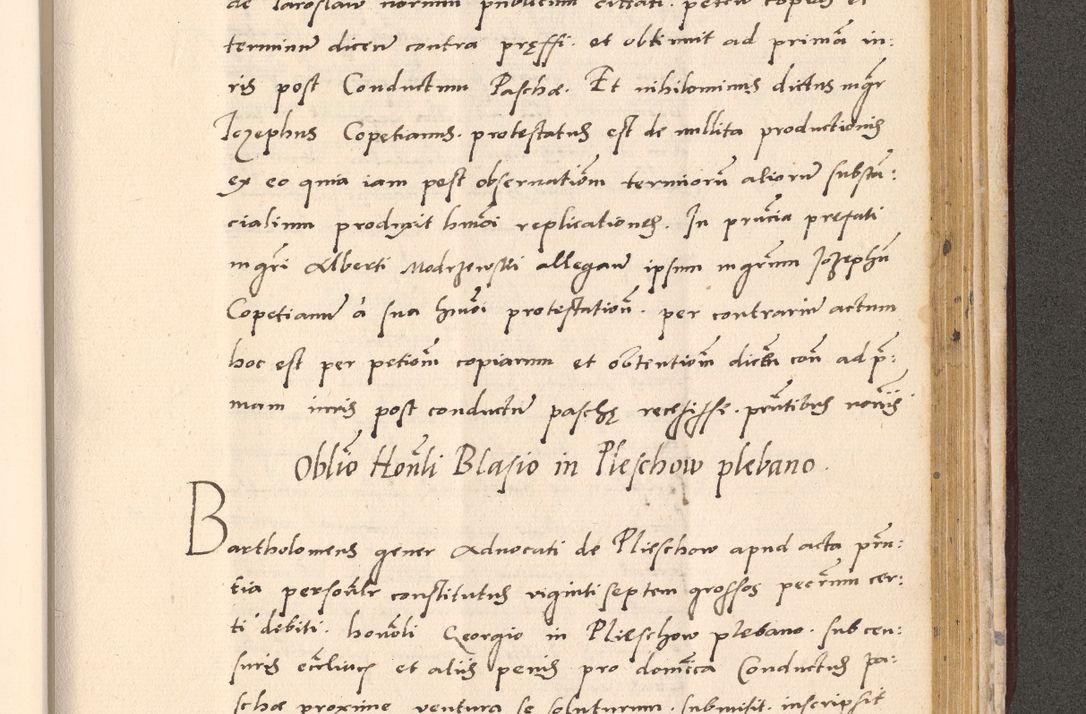 de Iaroslaw notarium publicum citati. petere copiam et
terminū dicere contra pręssi. et obtinuit ad primā iu:
ris post Conductum Paschæ. Et nihilominus dictus mgr̄
Iozephus Copetianus. protestatus est de nullita productionis
ex eo quia iam post obseruatiōm terminorū aliorū substā:
cialium produxit humōi replicationes. In pn̄cia prefati
mgr̄i Alberti Modrzewski allegans ipsum mgr̄um Iozephū
Copetianū à sua humōi protestatioñ. per contrariū actum
hoc est per petiōm copiarum et obtentiōm dicti coñ ad p̄:
mam iuris post conductū paschę recessisse. pn̄tibus notariis
Oblīo Honli Blasio in Pleschow plebano.
Bartholomeus gener Aduocati de Plieschow apud acta pn̄:
tia personalr constitutus viginti septem grossos pecn̄rum cer:
ti debiti. honoli Georgio in Plieschow plebano. sub cen:
suris ecclīucis et aliis penis pro domīca Conductus Pa:
schæ proxime ventura se soluturum. submisit. inscripsit